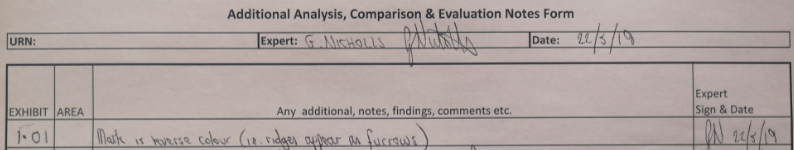 Additional Analysis, Comparison & Evaluation Notes Form
URN: Expert: G. NICHOLLS GNicholls Date: 22/5/19
Expert
EXHIBIT AREA Any additional, notes, findings, comments etc. Sign & Date
1.01 Mark is reverse colour (i.e. ridges appear as furrows) GN 22/5/19